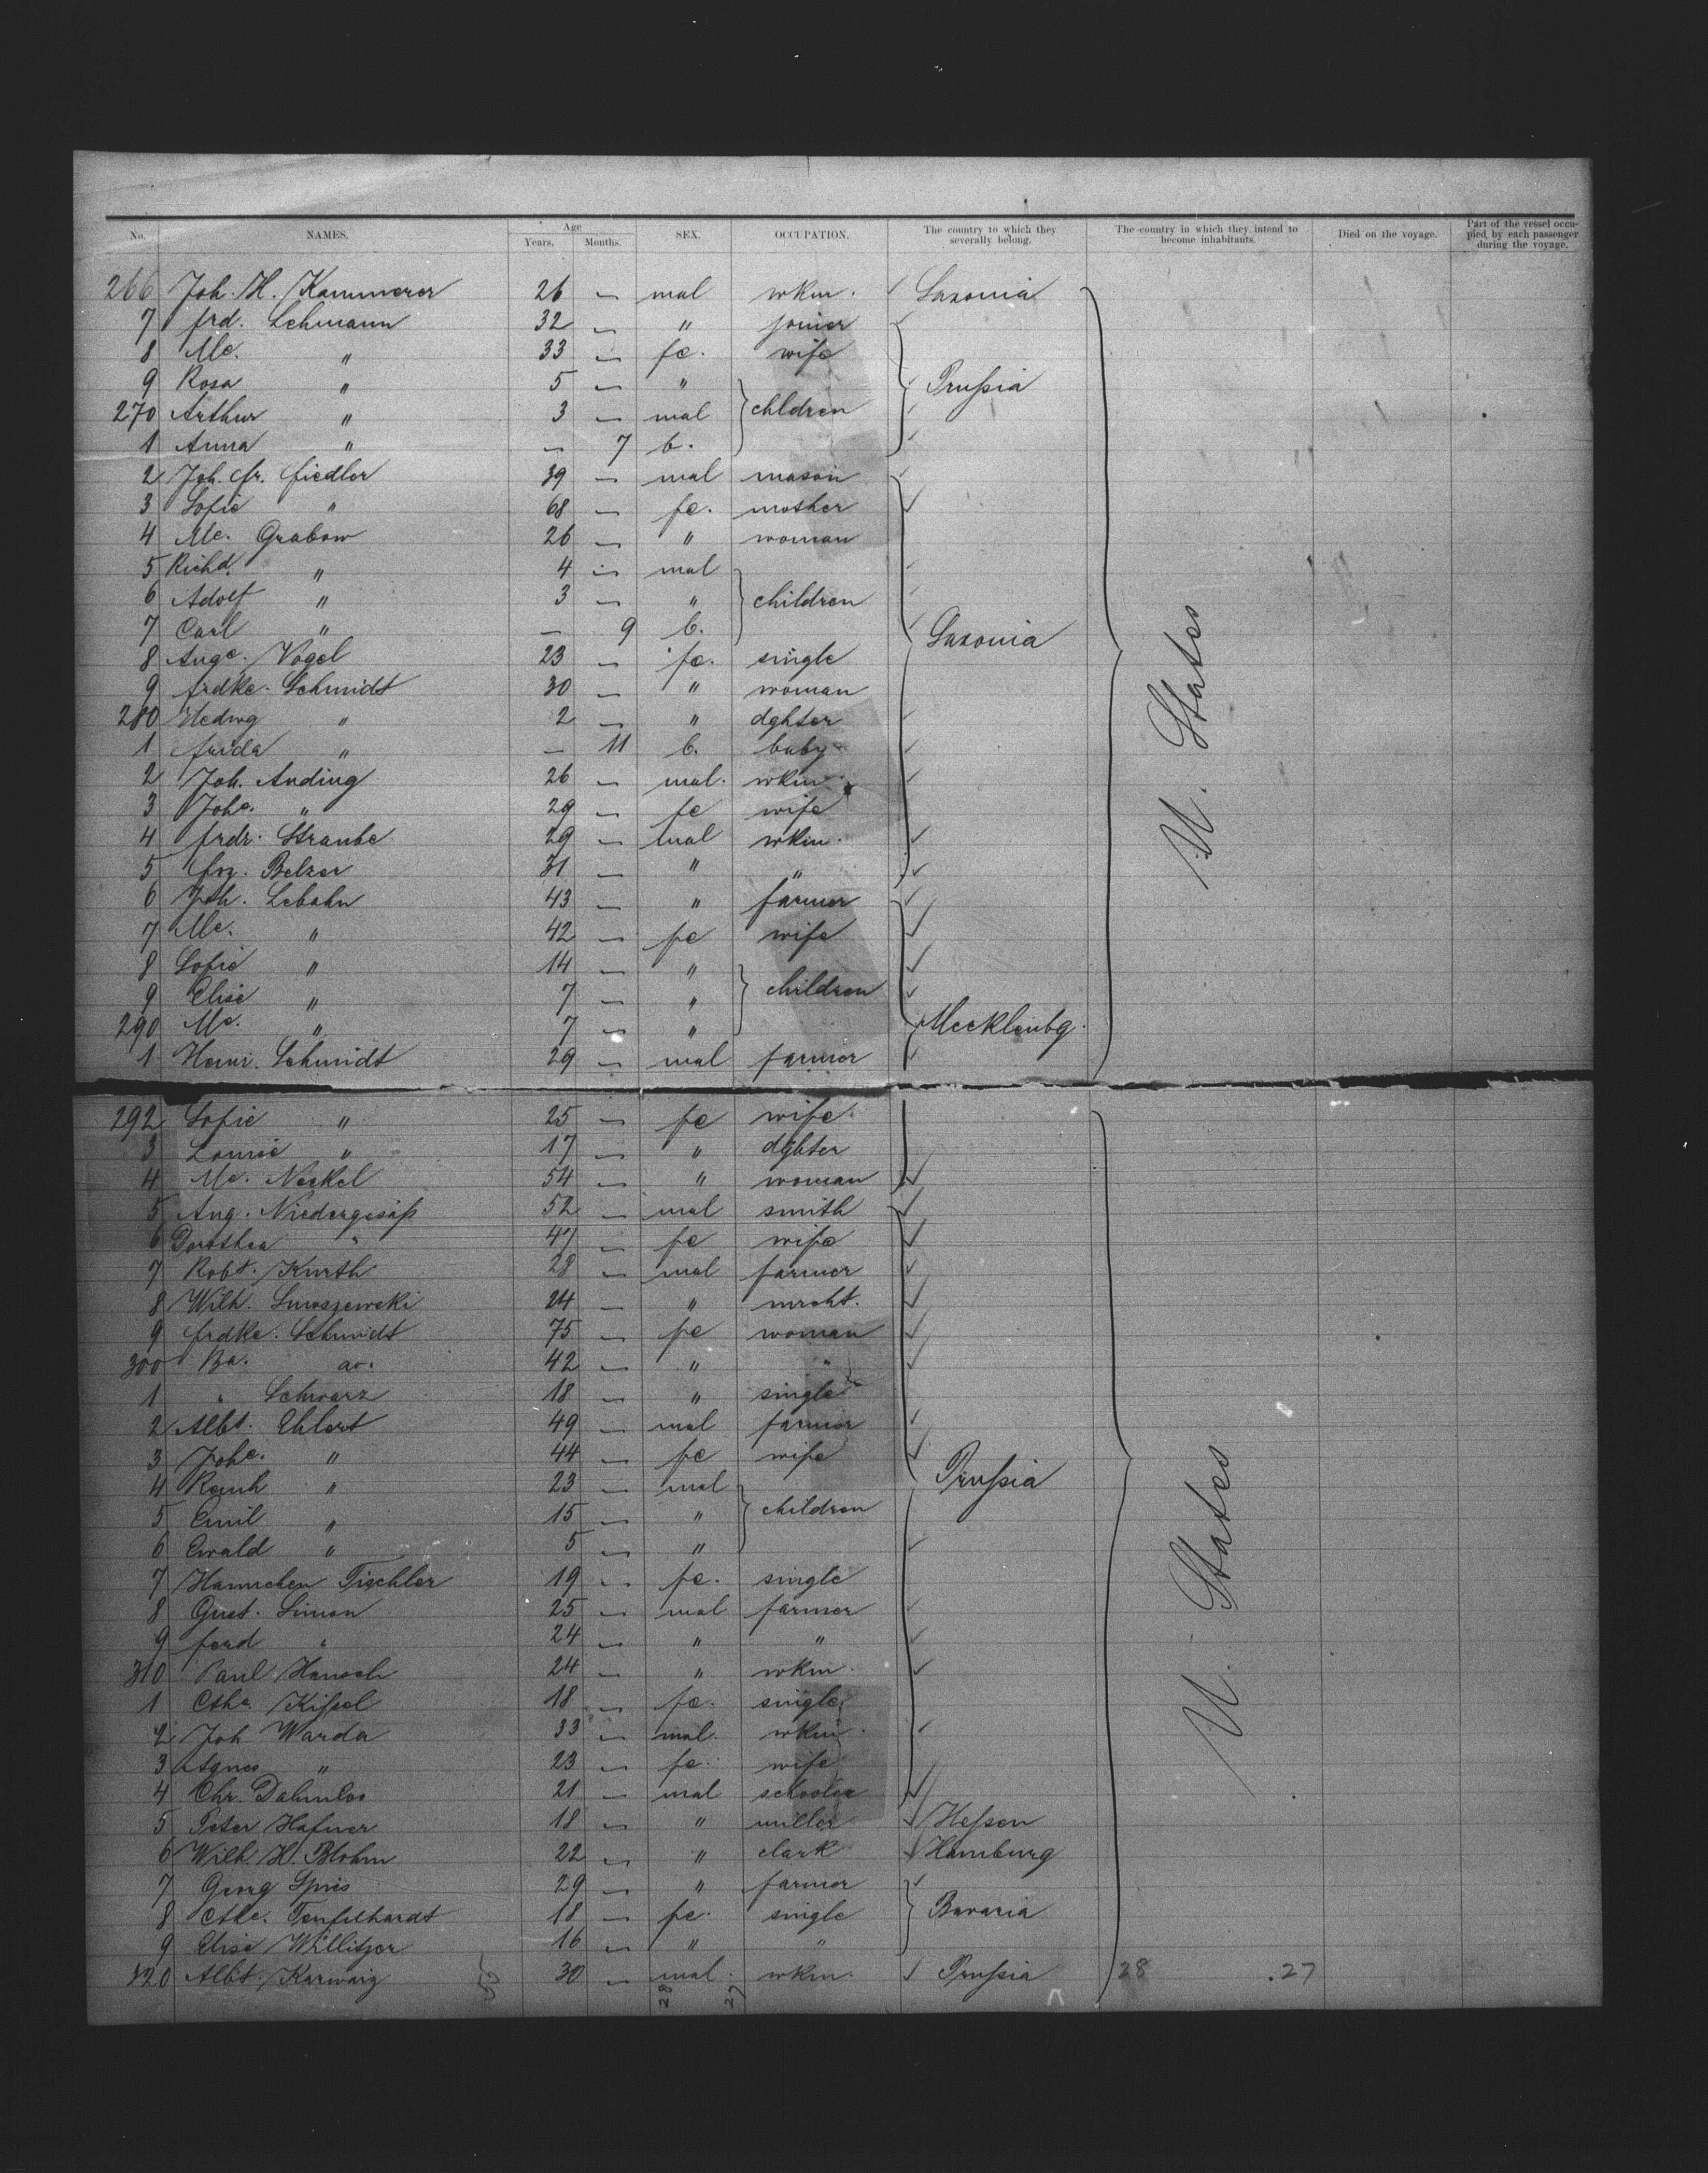 No. NAMES. Age Years. Months. SEX. OCCUPATION. The country to which they severally belong. The country in which they intend to become inhabitants. Died on the voyage. Part of the vessel occupied by each passenger during the voyage.
266 Joh. H. Kammerer 26 — mal wkm. Saxonia
7 Frd. Lehmann 32 — " joiner
8 Me. " 33 — fe. wife
9 Rosa " 5 — " Prußia
270 Arthur " 3 — mal chldren
1 Anna " — 7 b.
2 Joh. Fr. Fiedler 39 — mal mason
3 Sofie " 68 — fe. mother
4 Me. Grabow 26 — " woman
5 Richd. " 4 — mal
6 Adolf " 3 — " children
7 Carl " — 9 b. Saxonia
8 Auge. Vogel 23 — fe. single
9 Frdke. Schmidt 30 — " woman
280 Hedwg " 2 — " dghter
1 Frida " — 11 b. baby
2 Joh. Anding 26 — mal. wkm.
3 Johe. " 29 — fe wife
4 Frdr. Straube 29 — mal wkm.
5 Frz. Belzer 31 — " "
6 Joh. Lebahn 43 — " farmer
7 Me. " 42 — fe wife
8 Sofie " 14 — "
9 Elise " 7 — " children
290 Me. " 7 — " Mecklenbg.
1 Heinr. Schmidt 29 — mal farmer
U. States
292 Sofie " 25 — fe wife
3 Louise " 17 — " dghter
4 Me. Neckel 54 — " woman
5 Aug. Niedergesäß 52 — mal smith
6 Dorothea " 47 — fe wife
7 Robt. Kurth 28 — mal farmer
8 Wilh. 24 — " mrcht.
9 Frdke. Schmidt 75 — fe woman
300 Ba. 42 — " "
1 " Schwarz 18 — " single
2 Albt. Ehlert 49 — mal farmer
3 Johe. " 44 — fe wife
4 Reinh " 23 — mal Prußia
5 Emil " 15 — " children
6 Ewald " 5 — "
7 Hannchen Tischler 19 — fe. single
8 Gust. Simon 25 — mal farmer
9 Ferd " 24 — " "
310 Paul Hansch 24 — " wkm.
1 Kißel 18 — fe. single
2 Joh Warda 33 — mal. wkm.
3 Agnes " 23 — fe. wife
4 Chr. 21 — mal
5 Peter Hafner 18 — " miller Heßen
6 Wilh. H. Blohm 22 — " clark Hamburg
7 Georg Spies 29 — " farmer
8 Teufelhardt 18 — fe. single Bavaria
9 Elise Willitzer 16 — " "
320 Albt. 30 — mal. wkm. Prußia 28 .27
U. States
28 27